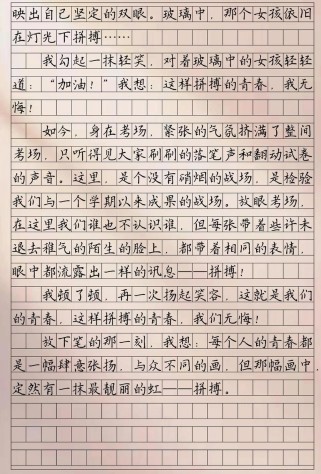 映出自己坚定的双眼。玻璃中，那个女孩依旧
在灯光下拼搏……
我勾起一抹轻笑，对着玻璃中的女孩轻轻
道：“加油！”我想：这样拼搏的青春，我无
悔！
如今，身在考场，紧张的气氛挤满了整间
考场，只听得见大家刷刷的落笔声和翻动试卷
的声音。这里，是个没有硝烟的战场，是检验
我们与一个学期以来成果的战场。放眼考场，
在这里我们谁也不认识谁，但每张带着些许未
退去稚气的陌生的脸上，都带着相同的表情，
眼中都流露出一样的讯息——拼搏！
我顿了顿，再一次扬起笑容，这就是我们
的青春，这样拼搏的青春，我们无悔！
放下笔的那一刻，我想：每个人的青春都
是一幅肆意张扬，与众不同的画，但那幅画中，
定然有一抹最靓丽的虹——拼搏。